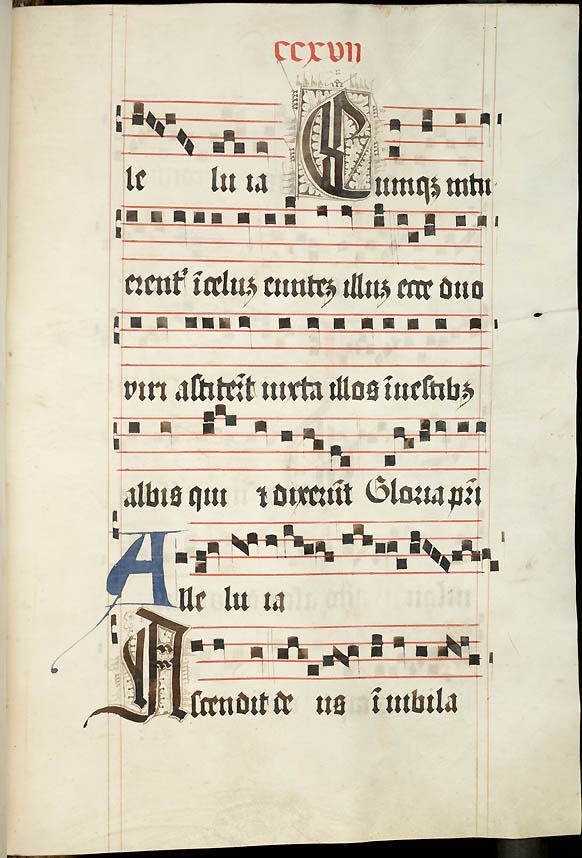 ccxvii
le lu ia Cumqꝫ intu
erent᷒ ī celuꝫ eunteꝫ illuꝫ ecce duo
viri astiterūt iuxta illos ī uestibꝫ
albis qui ⁊ dixerūt Gloria pri
Alle lu ia
Ascendit de us ī iubila